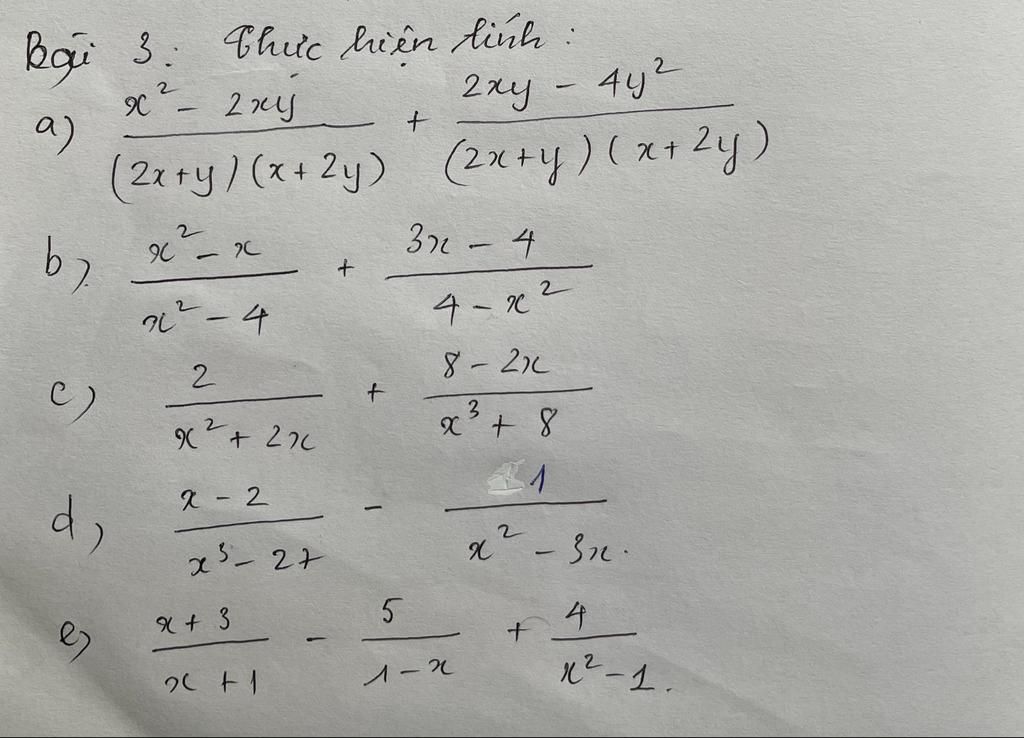 Bài 3: Thực hiện tính:
a) \frac{x^2 - 2xy}{(2x+y)(x+2y)} + \frac{2xy - 4y^2}{(2x+y)(x+2y)}
b) \frac{x^2 - x}{x^2 - 4} + \frac{3x - 4}{4 - x^2}
c) \frac{2}{x^2 + 2x} + \frac{8 - 2x}{x^3 + 8}
d) \frac{x - 2}{x^3 - 27} - \frac{1}{x^2 - 3x}.
e) \frac{x + 3}{x + 1} - \frac{5}{1 - x} + \frac{4}{x^2 - 1}.